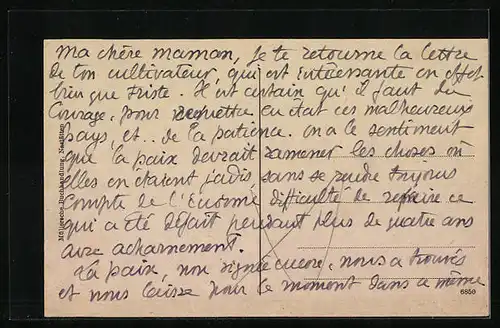 Ma chère maman, je te retourne la lettre
de ton cultivateur, qui est intéressante en effet
bien que triste. Il est certain qu'il faut du
courage, pour remettre en état ces malheureux
pays, et.. de la patience. On a le sentiment
que la paix devrait ramener les choses où
elles en étaient jadis, sans se rendre toujours
compte de l'énorme difficulté de refaire ce
qui a été défait pendant plus de quatre ans
avec acharnement.
La paix, non signée encore, nous a trouvés
et nous laisse pour le moment dans la même
Müllersche Buchhandlung, Nastätten
6850